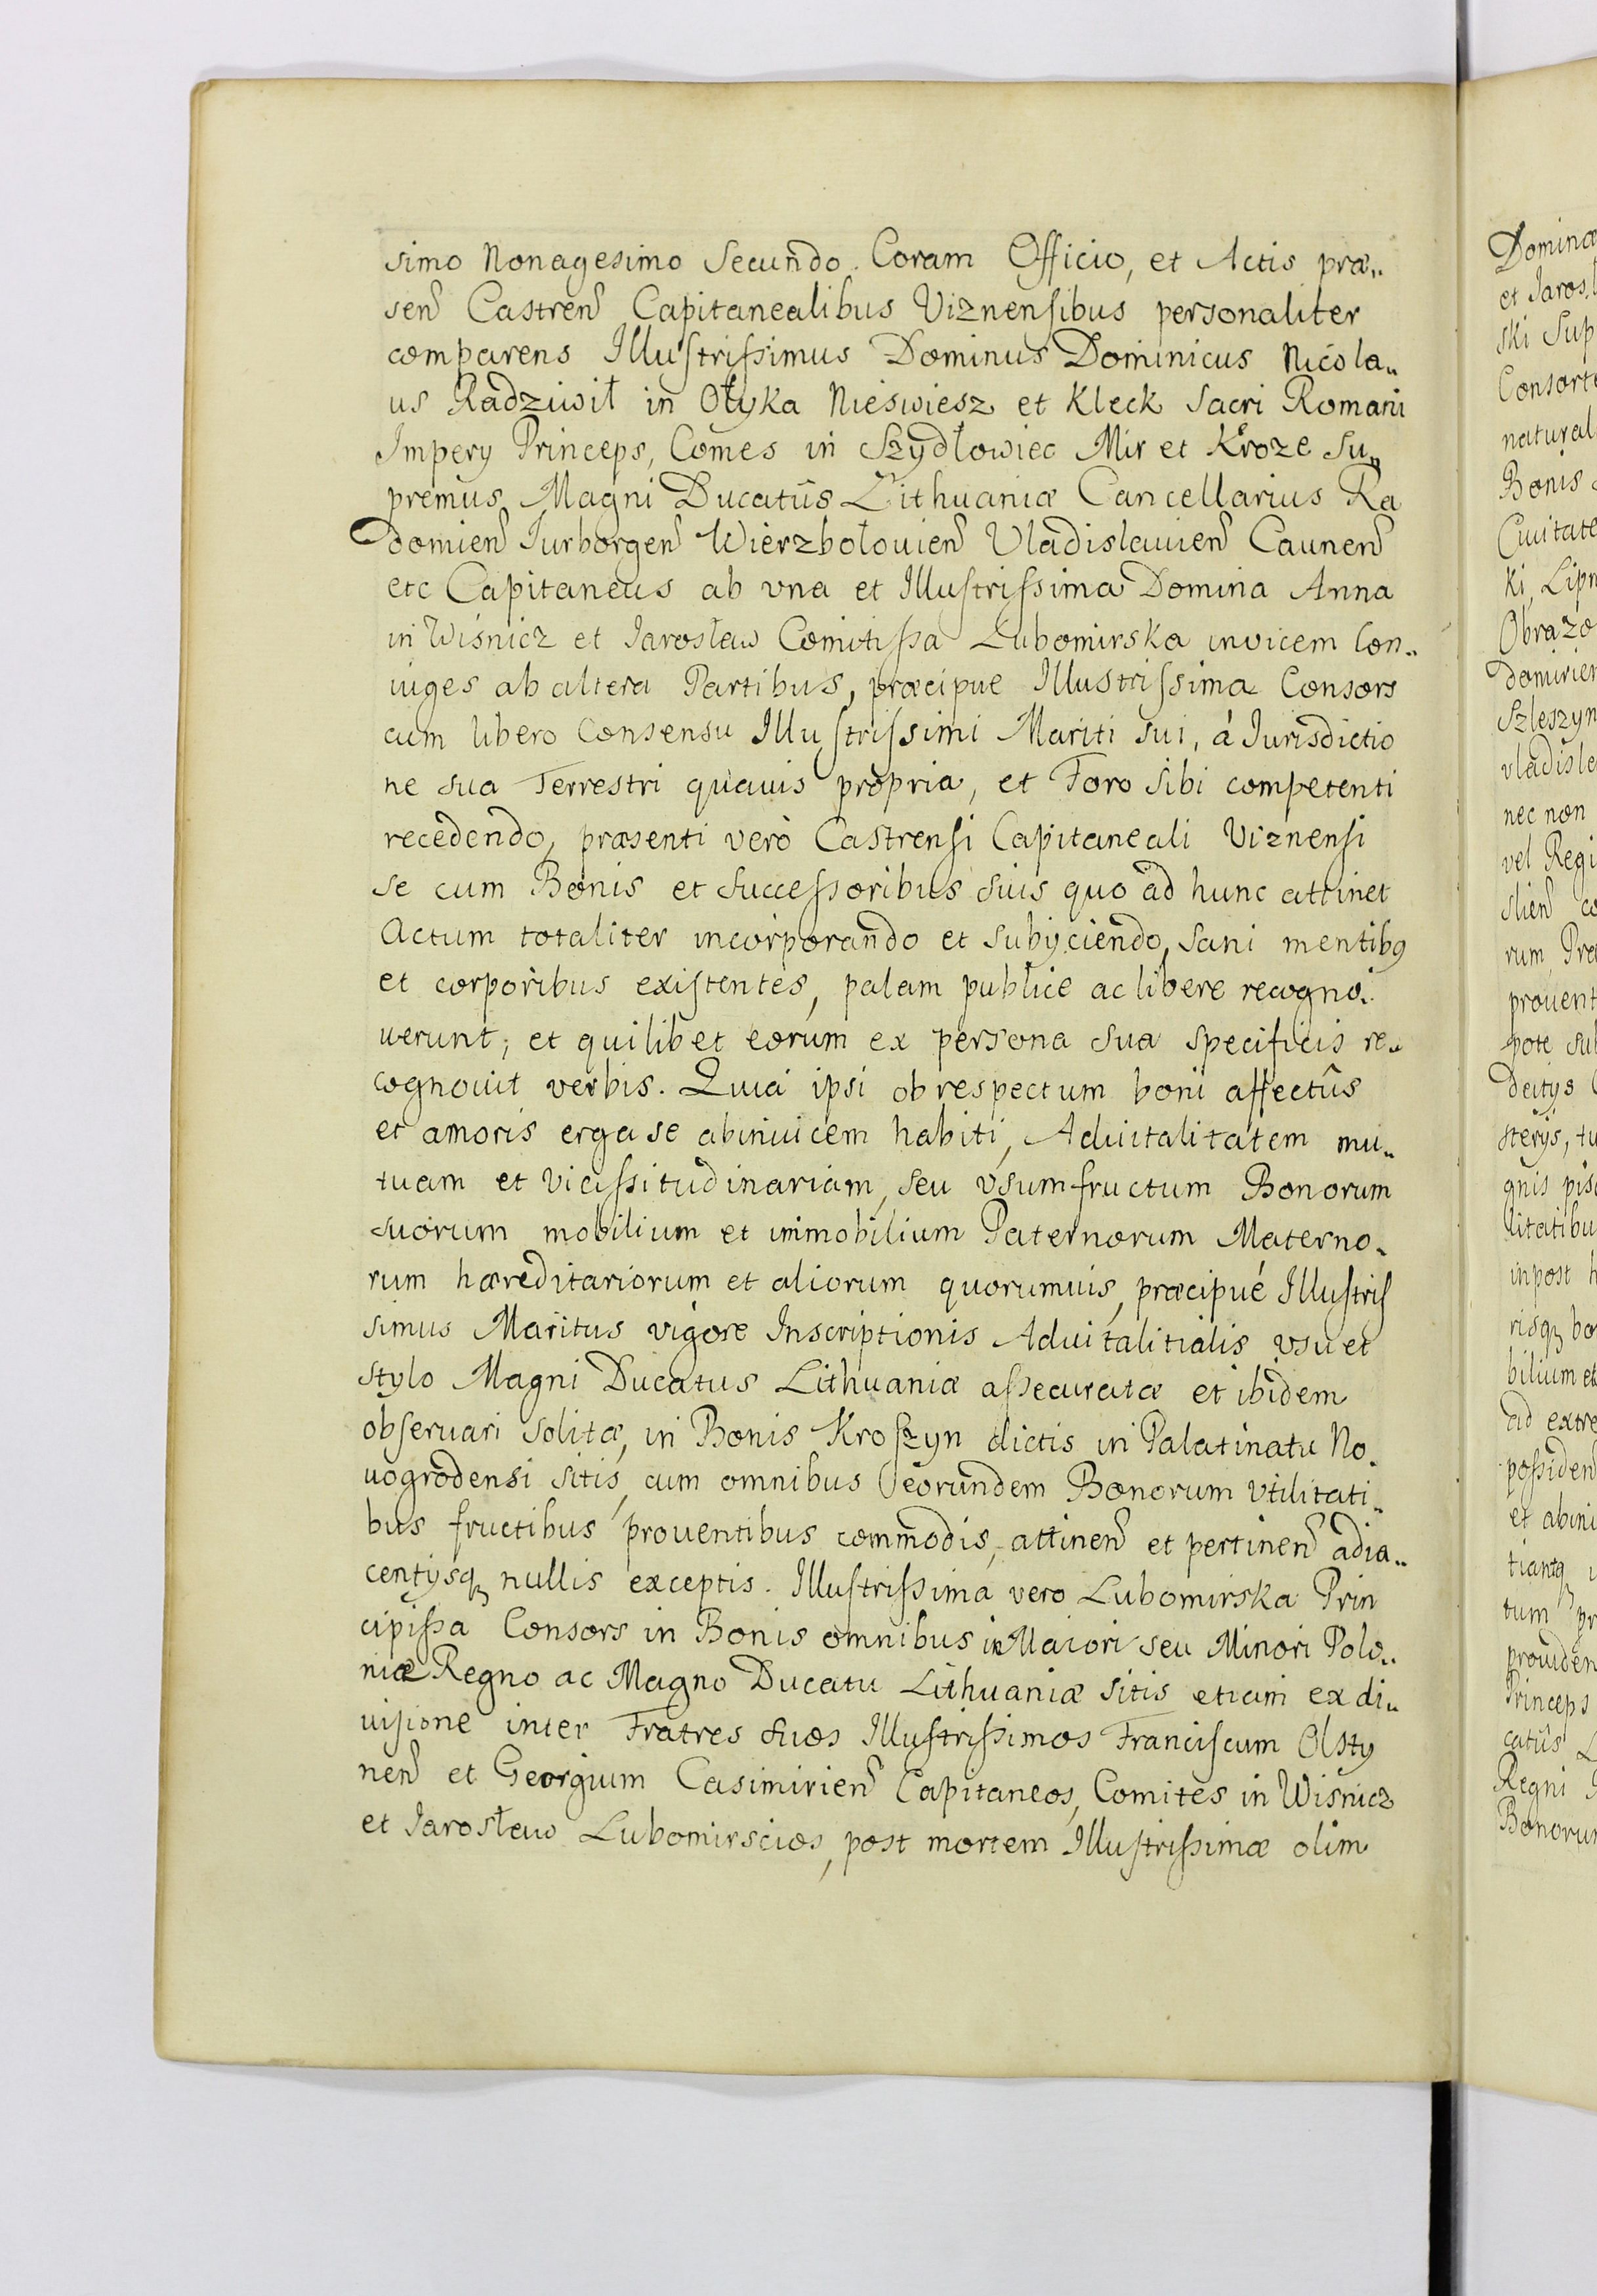 simo Nonagesimo Secundo. Coram Officio, et Actis præ„
sen Castren Capitanealibus Viznensibus personaliter
comparens Illustrissimus Dominus Dominicus Nicola„
us Radziwił in Ołyka Nieswiesz et Kleck Sacri Romani
Impery Princeps, Comes in Szydłowiec Mir et Kroze Su„
premus Magni Ducatûs Lithuaniæ Cancellarius Ra
domien Iurborgen Wierzbołouien Vladislauien Caunen
etc Capitaneus ab vna et Illustrissima Domina Anna
in Wiśnicz et Jarosław Comitissa Lubomirska invicem Con„
iuges ab altera Partibus, præcipue Illustrissima Consors
cum libero Consensu Illustrissimi Mariti sui, á Iurisdictio
ne sua Terrestri quauis propria, et Foro sibi competenti
recedendo, præsenti verò Castrensi Capitaneali Viznensi
se cum Bonis et Successoribus suis quo ad hunc attinet
Actum totaliter incorporando et subyciendo, sani mentibq
et corporibus existentes, palam publice ac libere recogno„
uerunt; et quilibet eorum ex persona sua specificis re„
cognouit verbis. Quia ipsi ob respectum boni affectûs
et amoris erga se abinuicem habiti, Aduitalitatem mu„
tuam et vicissitudinariam, seu vsumfructum Bonorum
suorum mobilium et immobilium Paternorum Materno„
rum hæreditariorum et aliorum quorumuis, præcipué Illustris
simus Maritus vigore Inscriptionis Aduitalitialis vsu et
stylo Magni Ducatus Lithuaniæ assecuratæ et ibidem
obseruari solitæ, in Bonis Kroszyn dictis in Palatinatu No„
uogrodensi sitis, cum omnibus eorundem Bonorum vtilitati„
bus fructibus prouentibus commodis, attinen et pertinen adia„
centysq nullis exceptis. Illustrissima vero Lubomirska Prin
cipissa Consors in Bonis omnibus in Maiori seu Minori Polo„
niæ Regno ac Magno Ducatu Lithuaniæ sitis etiam ex di„
uisione inter Fratres suos Illustrissimos Franciscum Olszty
nen et Georgium Casimirien Capitaneos, Comites in Wiśnicz
et Jarosław Lubomirscios, post mortem Illustrissimæ olim